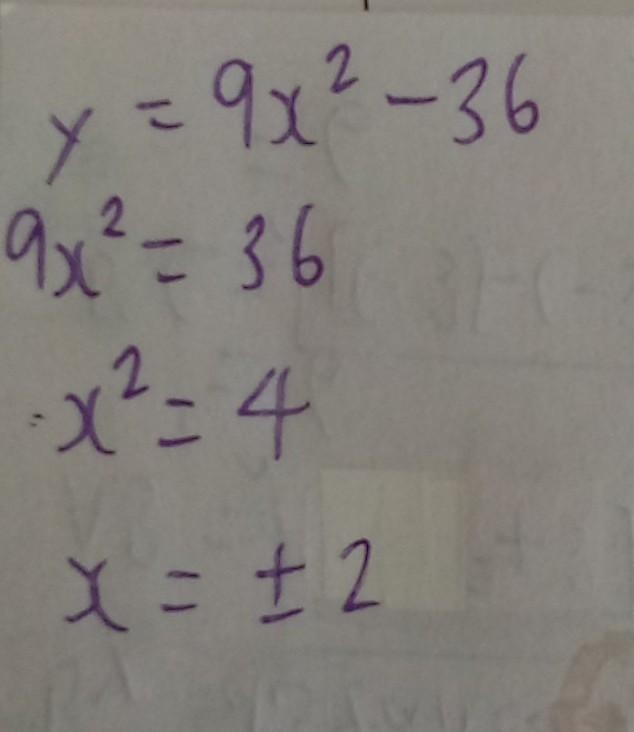 y = 9x² - 36
9x² = 36
x² = 4
x = ± 2